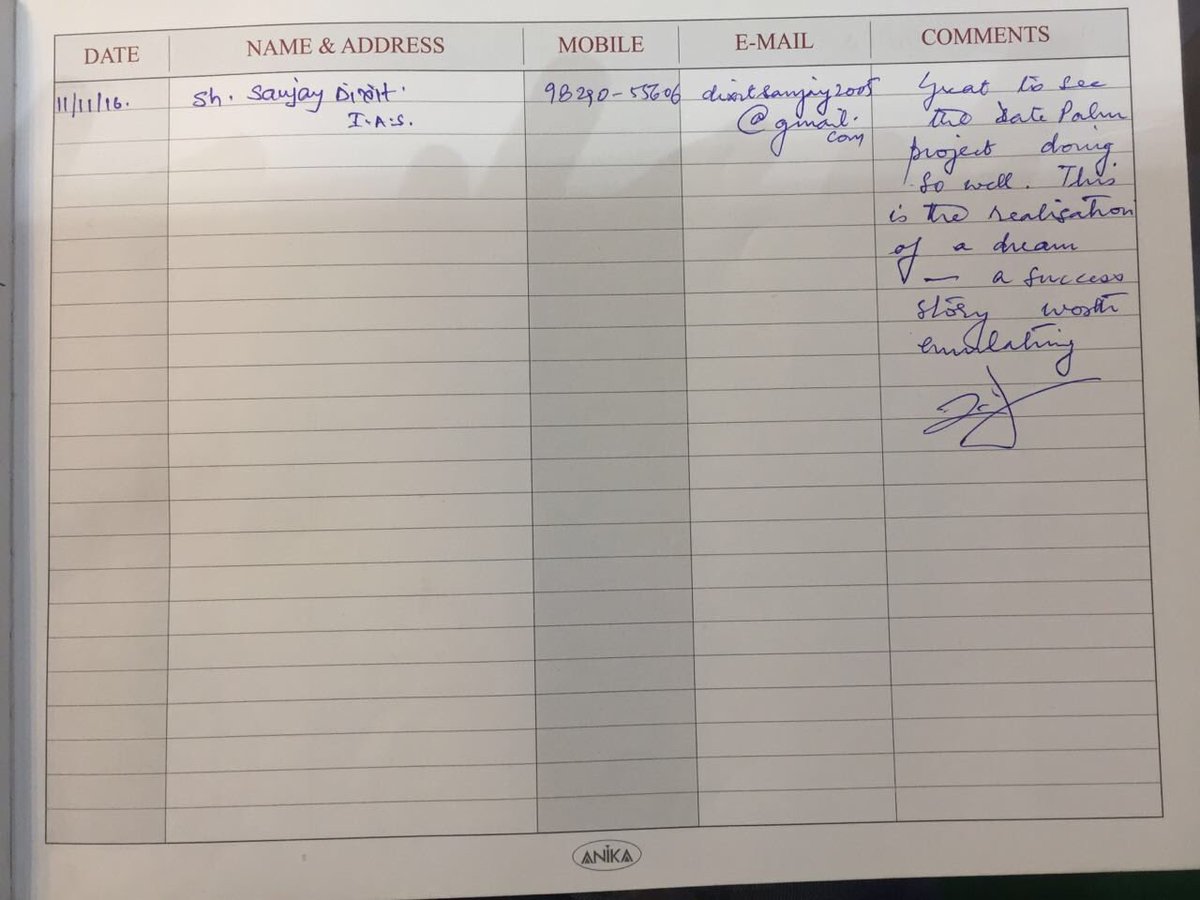 DATE NAME & ADDRESS MOBILE E-MAIL COMMENTS
11/11/16. Sh. Sanjay Dixit. 98290-55606 dixitsanjay2005 Great to see
I.A.S. @gmail. the date Palm
com
project doing
so well. This
is the realisation
of a dream
— a success
story worth
emulating
ANIKA